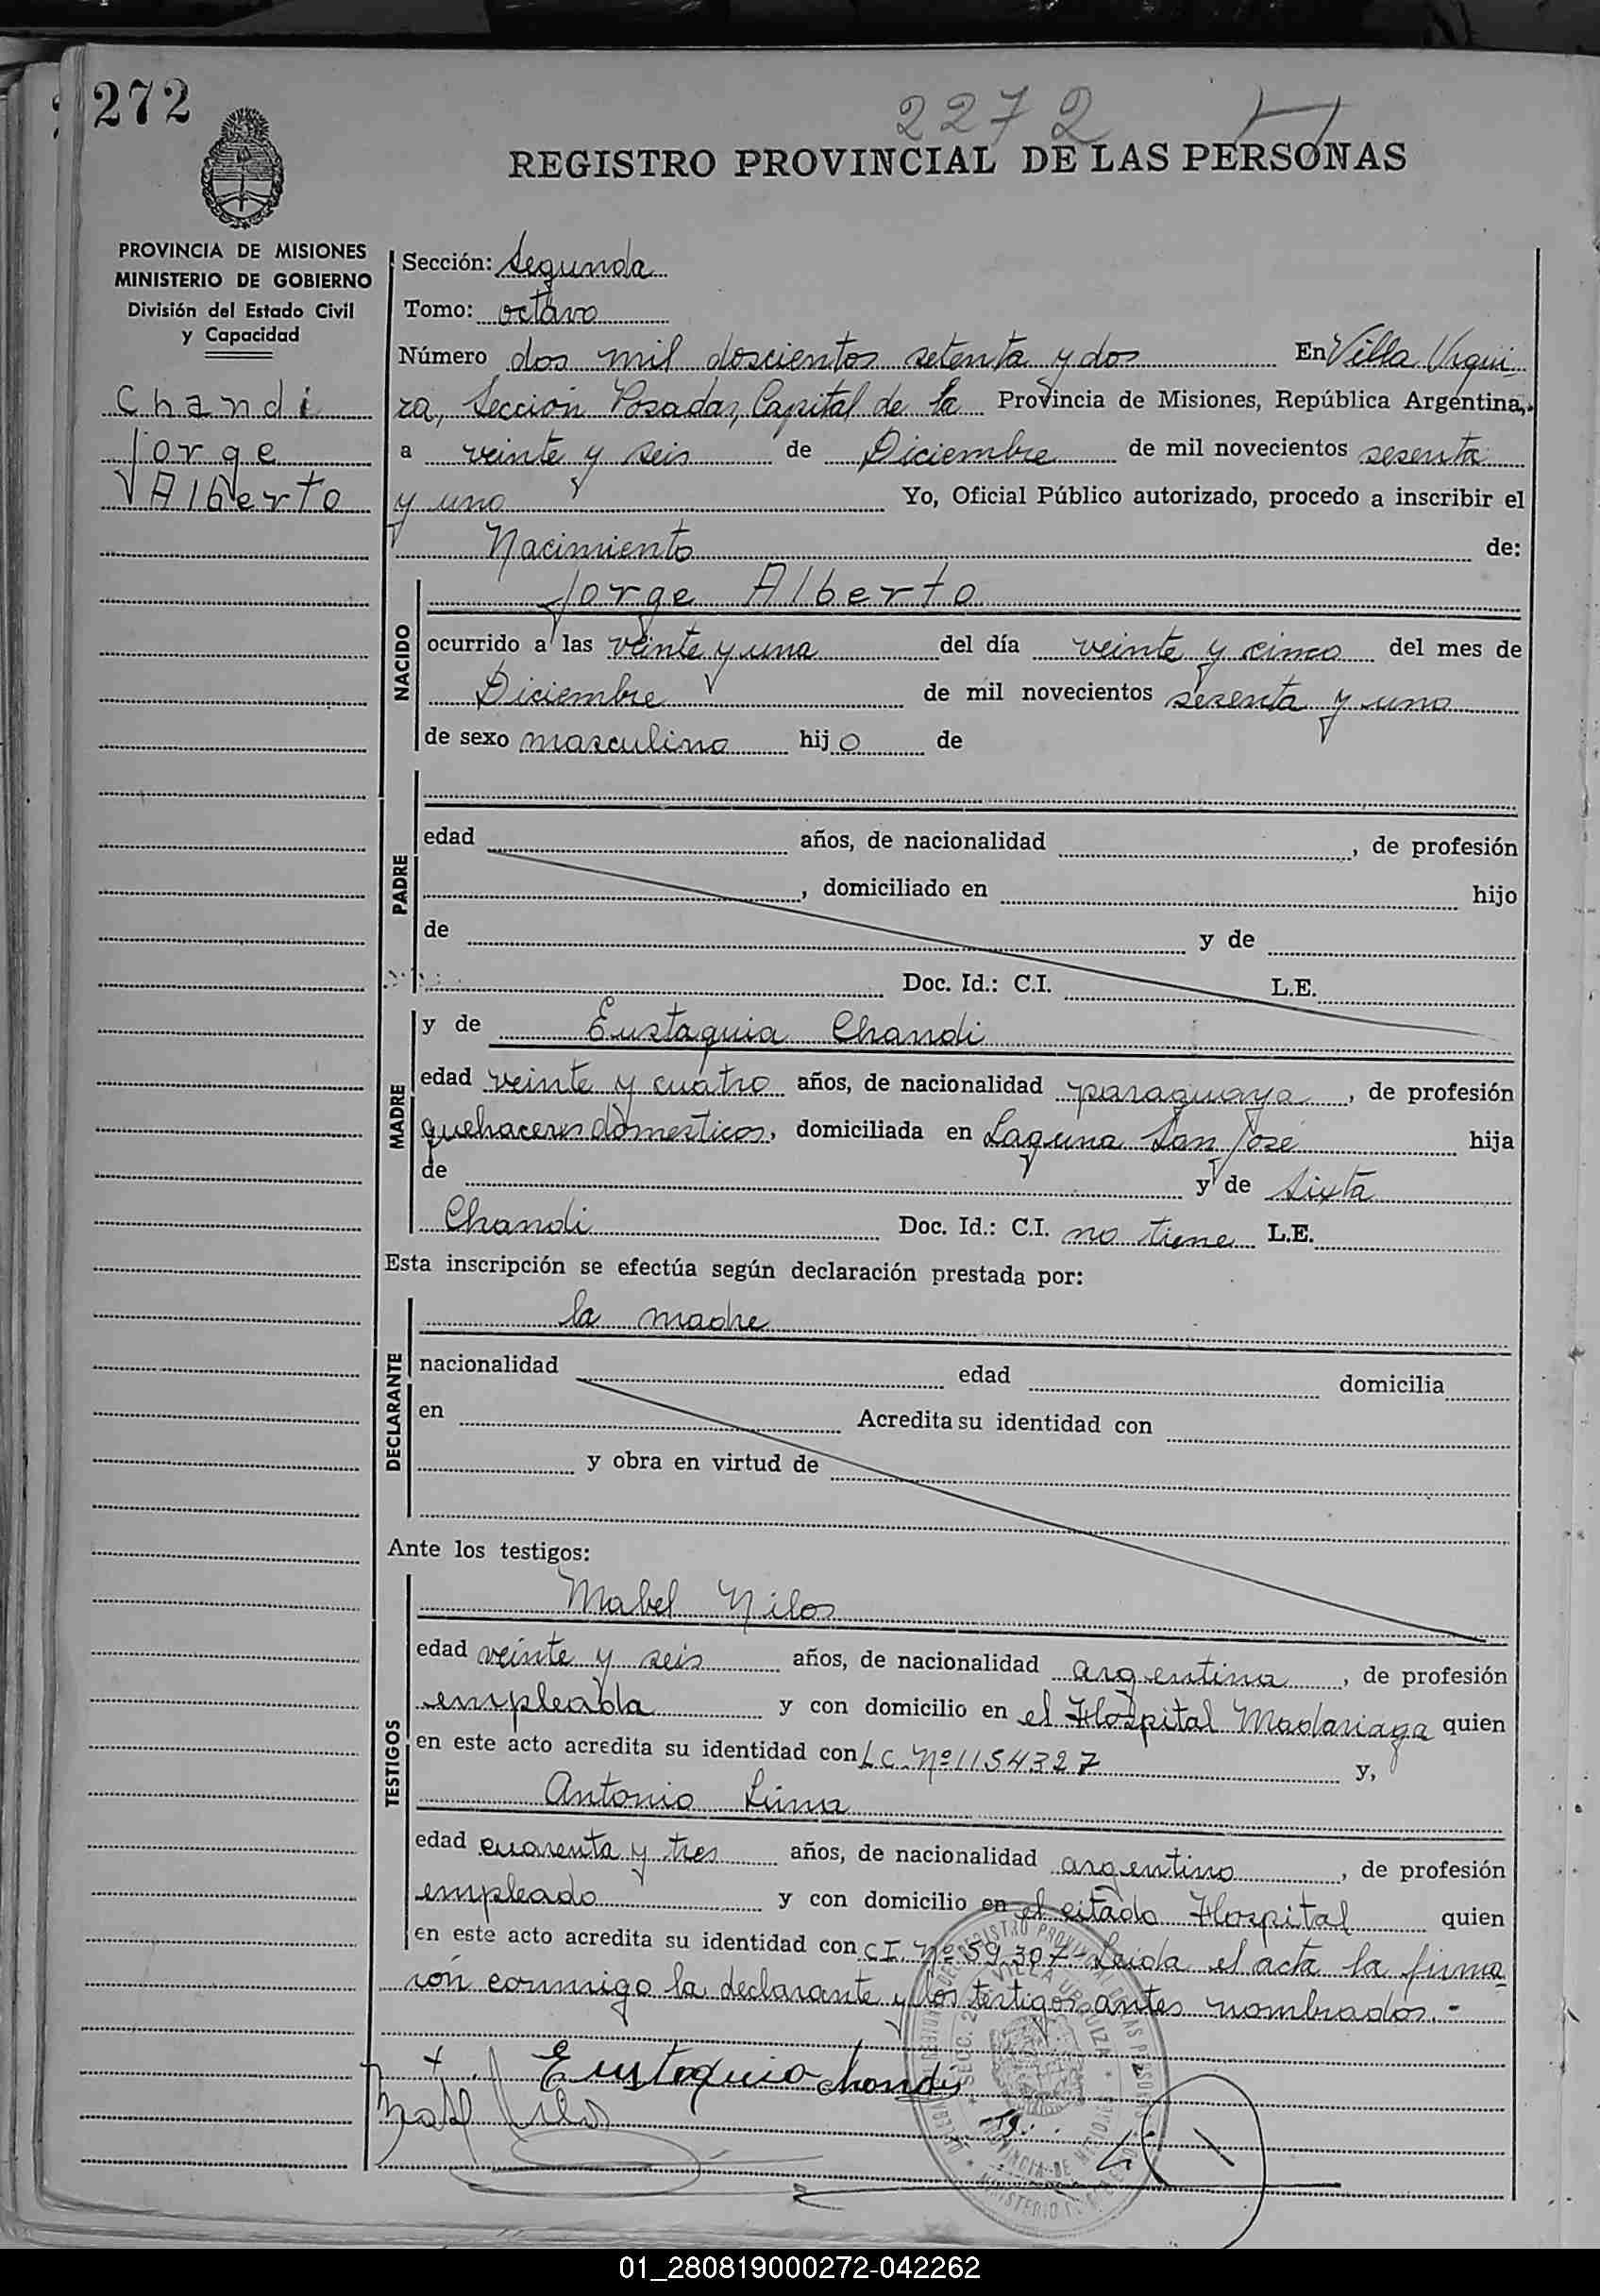 272
2272
REGISTRO PROVINCIAL DE LAS PERSONAS
PROVINCIA DE MISIONES
MINISTERIO DE GOBIERNO
División del Estado Civil
y Capacidad
Chandi
Jorge
Alberto
Sección: Segunda
Tomo: octavo
Número dos mil doscientos setenta y dos En Villa Urqui-
za, Sección Posadas, Capital de la Provincia de Misiones, República Argentina,
a veinte y seis de Diciembre de mil novecientos sesenta
y uno Yo, Oficial Público autorizado, procedo a inscribir el
Nacimiento de:
NACIDO
Jorge Alberto
ocurrido a las veinte y una del día veinte y cinco del mes de
Diciembre de mil novecientos sesenta y uno
de sexo masculino hijo de
PADRE
edad años, de nacionalidad , de profesión
, domiciliado en hijo
de y de
Doc. Id.: C.I. L.E.
MADRE
y de Eustaquia Chandi
edad veinte y cuatro años, de nacionalidad paraguaya, de profesión
quehaceres domesticos, domiciliada en Laguna San José hija
de y de Sixta
Chandi Doc. Id.: C.I. no tiene L.E.
Esta inscripción se efectúa según declaración prestada por:
DECLARANTE
la madre
nacionalidad edad domicilia
en Acredita su identidad con
y obra en virtud de
Ante los testigos:
TESTIGOS
Mabel Nilos
edad veinte y seis años, de nacionalidad argentina, de profesión
empleada y con domicilio en el Hospital Madariaga quien
en este acto acredita su identidad con L.C. Nº 1154327 y,
Antonio Luna
edad cuarenta y tres años, de nacionalidad argentino, de profesión
empleado y con domicilio en el citado Hospital quien
en este acto acredita su identidad con C.I. Nº 59.307- Leida el acta la firma-
rón conmigo la declarante y los testigos antes nombrados.-
Eustaquia Chandi
01_280819000272-042262